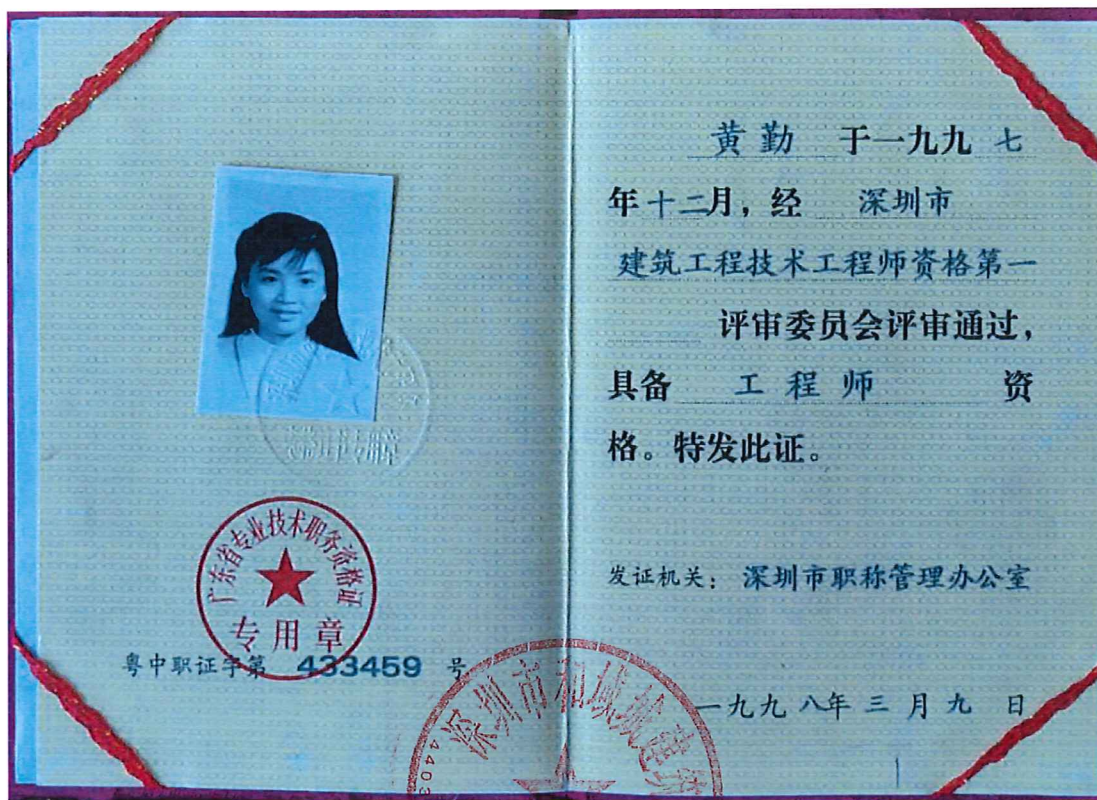 广东省专业技术职务资格证
专用章
粤中职证字第 433459 号
黄勤 于一九九 七
年十二月，经 深圳市
建筑工程技术工程师资格第一
评审委员会评审通过，
具备 工程师 资
格。特发此证。
发证机关：深圳市职称管理办公室
一九九八年三月九日
深圳市和域城建筑
4403